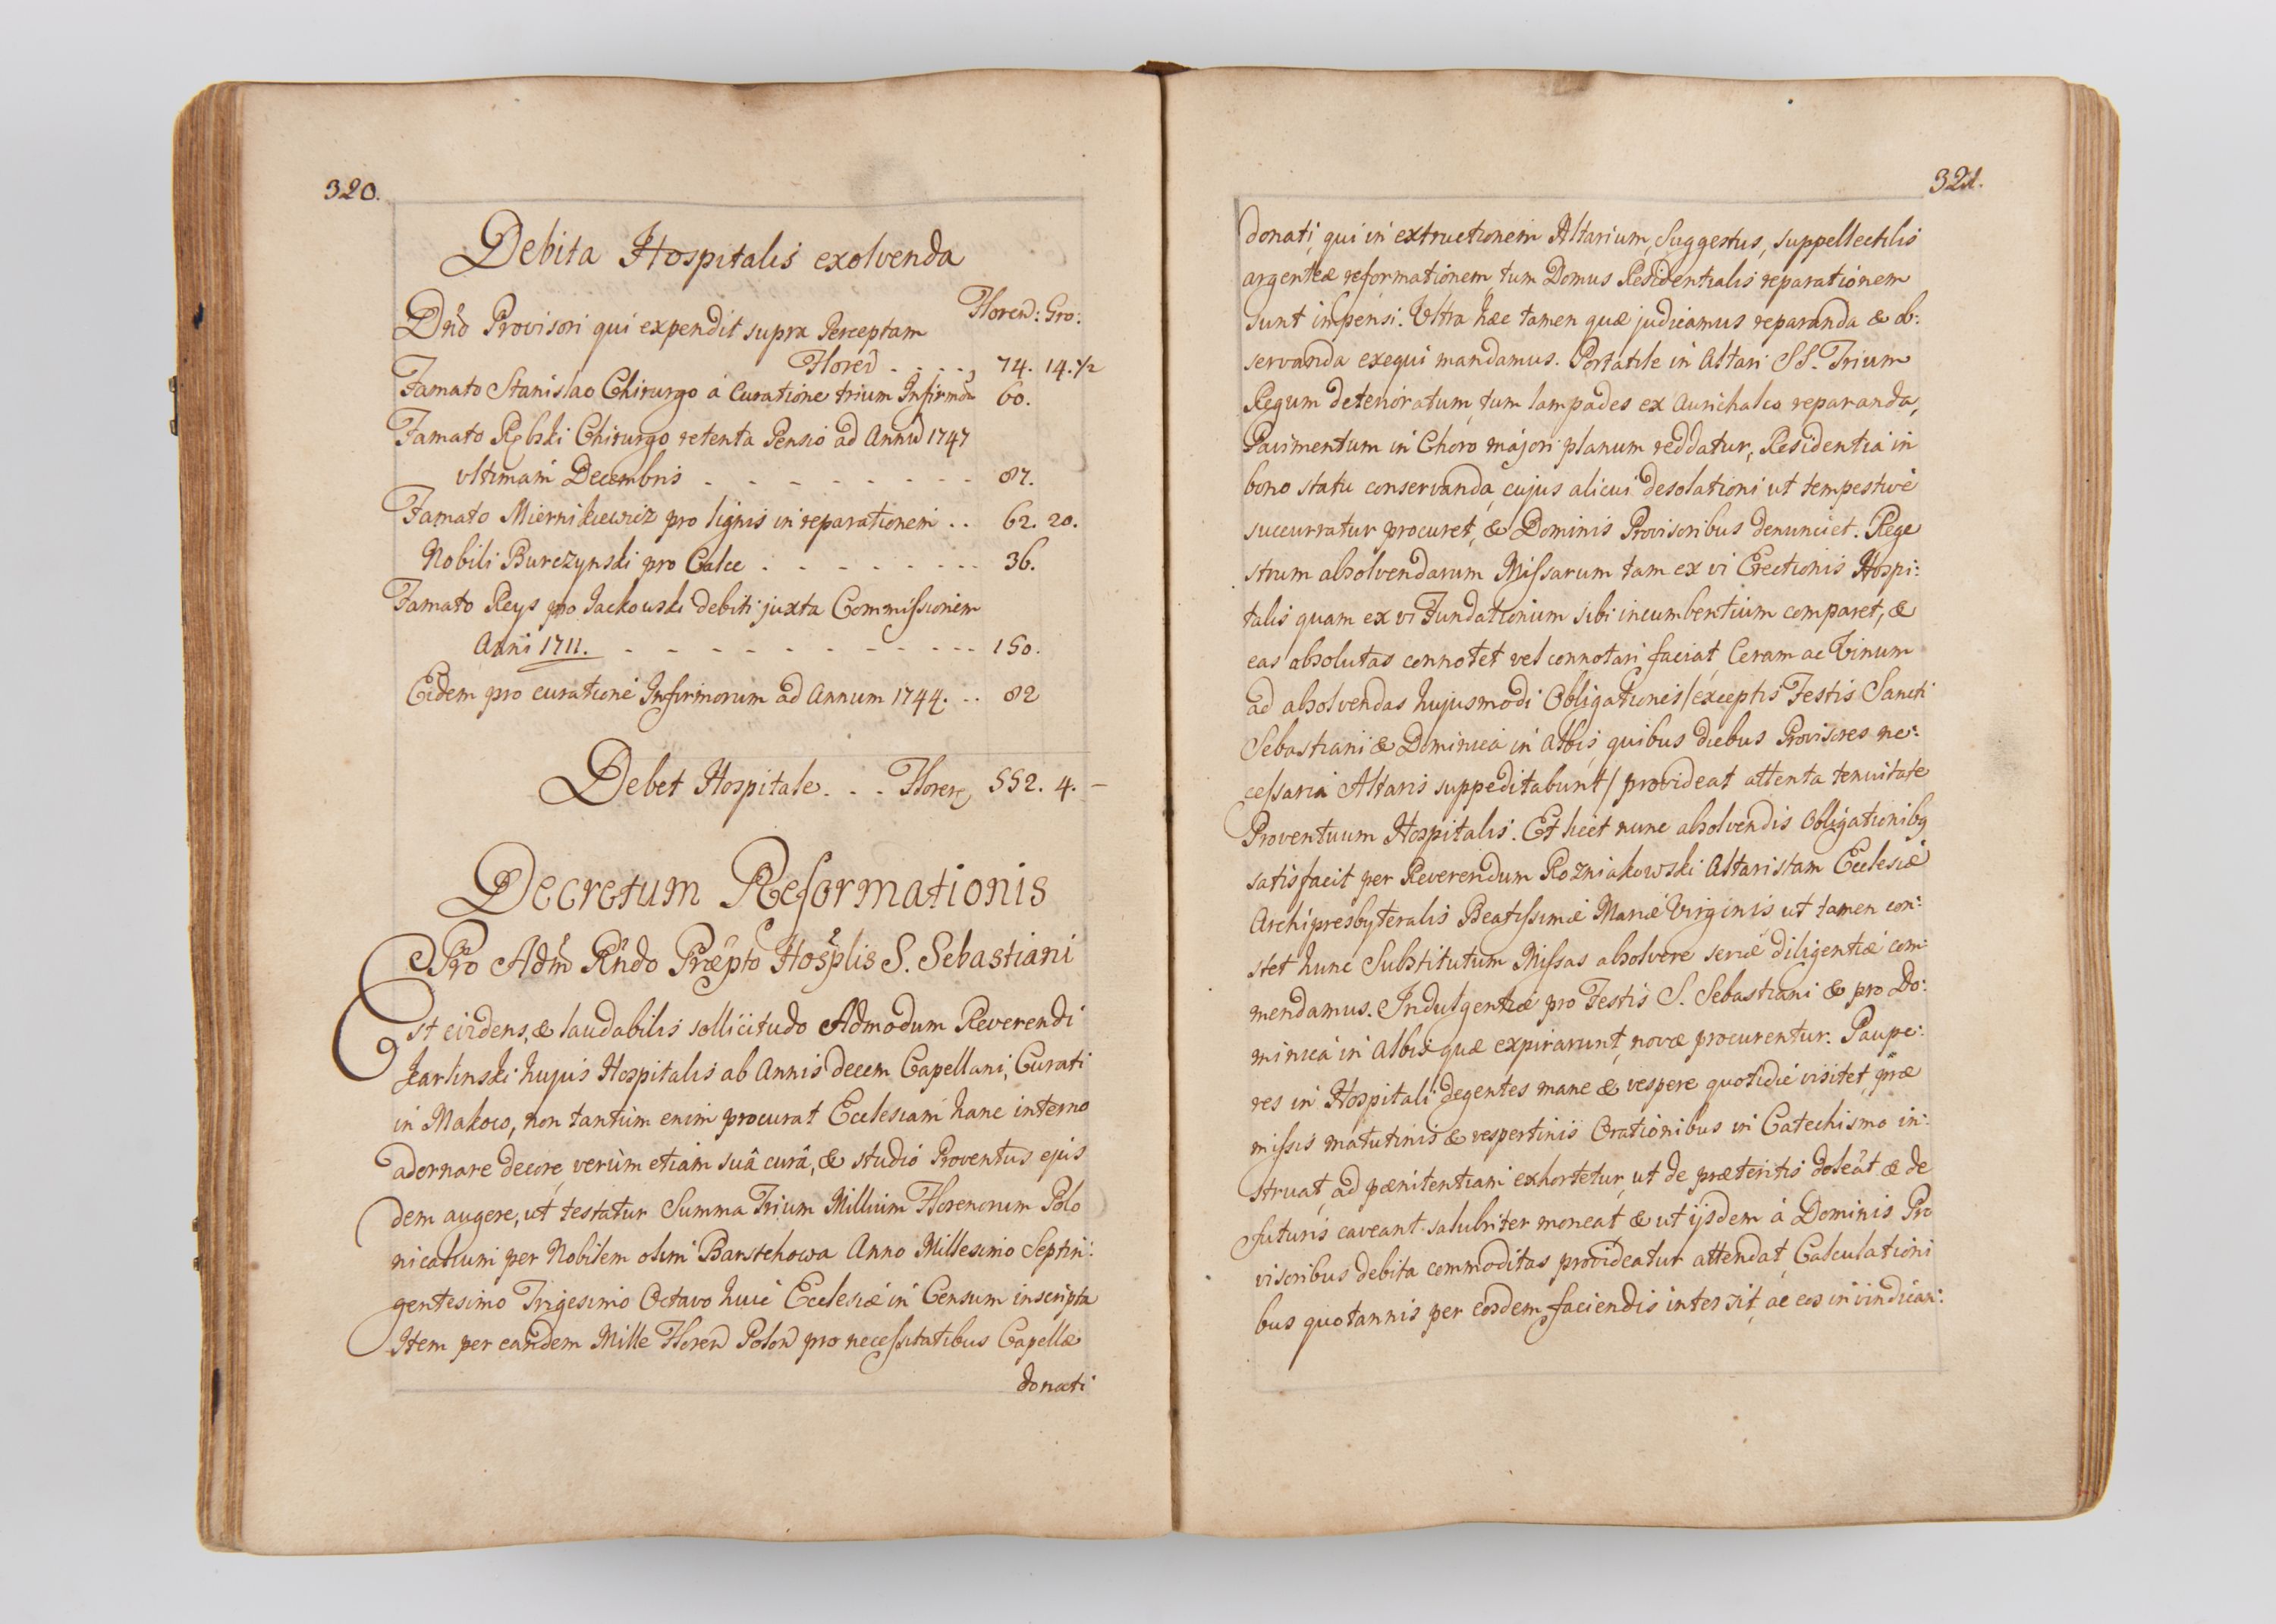 320.
Debita Hospitalis exolvenda
Floren: Gro:
Dno Provisori qui expendit supra Perceptam
Floren . . . . , 74. 14. 1/2
Famato Stanislao Chirurgo a Curatione trium Infirmor 60.
Famato Rębski Chirurgo retenta Pensio ad Annu 1747
ultimam Decembris . - - - - - - - - 87.
Famato Miernikiewicz pro lignis in reparationem . . 62. 20.
Nobili Burczynski pro Calce . - - - - - - - 36.
Famato Reys pro Jackowski debiti juxta Commissionem
Anni 1711. - - - - - - - - - - - - 150.
Eidem pro curatione Infirmorum ad Annum 1744. . . 82
Debet Hospitale. . . Floren 552. 4. —
Decretum Reformationis
Pro Adm Rndo Præpto Hosplis S. Sebastiani
Est evidens, & laudabilis sollicitudo Admodum Reverendi
Karlinski hujus Hospitalis ab Annis decem Capellani, Curati
in Makow, non tantum enim procurat Ecclesiam hanc interno
adornare decore, verùm etiam suâ curâ, & studio Proventus ejus
dem augere, ut testatur Summa Trium Millium Florenorum Polo
nicalium per Nobilem olim Barstchowa Anno Millesimo Septin:
gentesimo Trigesimo Octavo huic Ecclesiæ in Censum inscripta
Item per eandem Mille Floren Polon pro necessitatibus Capellæ
donati
321.
donati, qui in extructionem Altarium, Suggestus, suppellectilis
argenteæ reformationem, tum Domus Residentialis reparationem
sunt impensi. Ultra hæc tamen quæ judicamus reparanda & ob:
servanda exequi mandamus. Portatile in Altari SS. Trium
Regum deterioratum, tum lampades ex Aurichalco reparanda,
Pavimentum in Choro majori planum reddatur, Residentia in
bono statu conservanda, cujus alicui desolationi ut tempestivè
succurratur procuret, & Dominis Provisoribus denunciet. Rege
strum absolvendarum Missarum tam ex vi Erectionis Hospi:
talis quam ex vi Fundationum sibi incumbentium comparet, &
eas absolutas connotet vel connotari faciat, Ceram ac Vinum
ad absolvendas hujusmodi Obligationes /exceptis Festis Sancti
Sebastiani & Dominica in Albis, quibus diebus Provisores ne:
cessaria Altaris suppeditabunt/ provideat attenta tenuitate
Proventuum Hospitalis. Et licèt nunc absolvendis Obligationibq
satisfacit per Reverendum Rozniakowski Altaristam Ecclesiæ
Archipresbyteralis Beatissimæ Mariæ Virginis, ut tamen con:
stet hunc Substitutum Missas absolvere seriæ diligentiæ com:
mendamus. Indulgentiæ pro Festis S. Sebastiani & pro Do:
minica in Albis quæ expirarunt, novæ procurentur. Paupe:
res in Hospitali degentes mane & vespere quotidie visitet, præ
missis matutinis & vespertinis Orationibus in Catechismo in:
struat, ad pænitentiam exhortetur, ut de præteritis doleat & de
futuris caveant salubriter moneat & ut ijsdem à Dominis Pro
visoribus debita commoditas provideatur attendat, Calculationi
bus quotannis per eosdem faciendis intersit, ac eos in vindican: